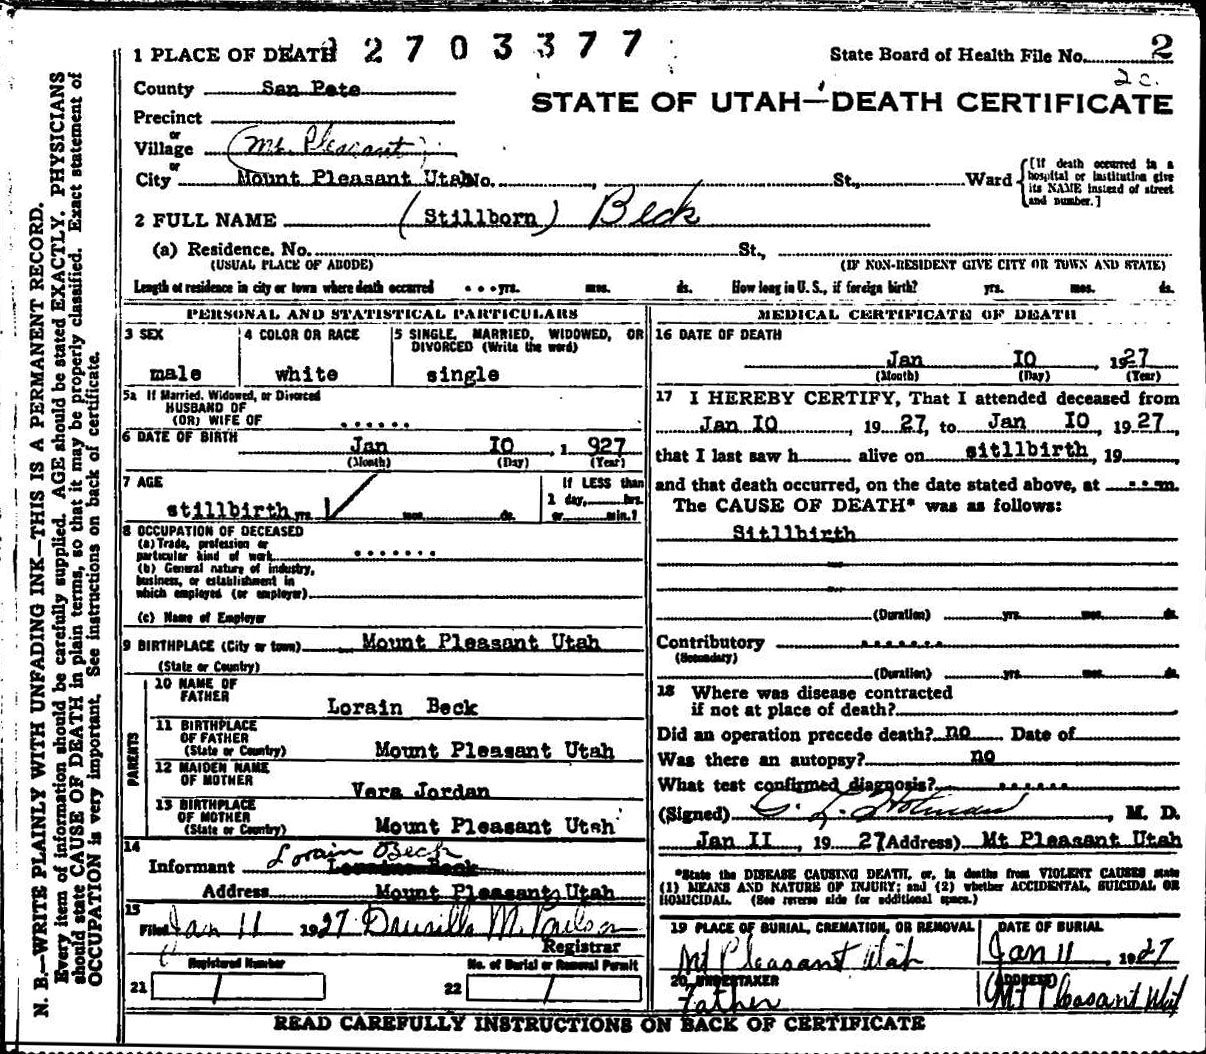 1 PLACE OF DEATH 2 7 0 3 3 7 7
State Board of Health File No. 2
2 c.
County San Pete
STATE OF UTAH—DEATH CERTIFICATE
Precinct
or
Village (Mt. Pleasant)
or
City Mount Pleasant Utah No. , St., Ward {[If death occurred in a hospital or institution give its NAME instead of street and number.]
2 FULL NAME (Stillborn) Beck
(a) Residence. No. St.,
(USUAL PLACE OF ABODE) (IF NON-RESIDENT GIVE CITY OR TOWN AND STATE)
Length of residence in city or town where death occurred yrs. mos. ds. How long in U. S., if foreign birth? yrs. mos. ds.
PERSONAL AND STATISTICAL PARTICULARS
3 SEX 4 COLOR OR RACE 5 SINGLE, MARRIED, WIDOWED, OR
DIVORCED (Write the word)
male white single
5a If Married, Widowed, or Divorced
HUSBAND OF
(OR) WIFE OF ......
6 DATE OF BIRTH Jan IO , 1 927
(Month) (Day) (Year)
7 AGE If LESS than
stillbirth yrs. 1 mos. ds. 1 day, hrs.
or min.?
8 OCCUPATION OF DECEASED
(a) Trade, profession or
particular kind of work .......
(b) General nature of industry,
business, or establishment in
which employed (or employer)
(c) Name of Employer
9 BIRTHPLACE (City or town) Mount Pleasant Utah
(State or Country)
PARENTS
10 NAME OF
FATHER Lorain Beck
11 BIRTHPLACE
OF FATHER
(State or Country) Mount Pleasant Utah
12 MAIDEN NAME
OF MOTHER Vera Jordan
13 BIRTHPLACE
OF MOTHER
(State or Country) Mount Pleasant Utah
14 Lorain Beck
Informant Beck
Address Mount Pleasant, Utah
15
Filed Jan 11 1927 Drusilla M.
Registrar
Registered Number No. of Burial or Removal Permit
21 1 22 1
MEDICAL CERTIFICATE OF DEATH
16 DATE OF DEATH
Jan IO , 1927
(Month) (Day) (Year)
17 I HEREBY CERTIFY, That I attended deceased from
Jan IO , 19 27, to Jan IO , 19 27,
that I last saw h alive on sitllbirth , 19 ,
and that death occurred, on the date stated above, at m.
The CAUSE OF DEATH* was as follows:
Sitllbirth
(Duration) yrs. mos. ds.
Contributory .......
(Secondary)
(Duration) yrs. mos. ds.
18 Where was disease contracted
if not at place of death?
Did an operation precede death? no Date of
Was there an autopsy? no
What test confirmed diagnosis? ......
(Signed) , M. D.
Jan II , 19 27 (Address) Mt Pleasant Utah
*State the DISEASE CAUSING DEATH, or, in deaths from VIOLENT CAUSES state
(1) MEANS AND NATURE OF INJURY; and (2) whether ACCIDENTAL, SUICIDAL OR
HOMICIDAL. (See reverse side for additional space.)
19 PLACE OF BURIAL, CREMATION, OR REMOVAL DATE OF BURIAL
Mt Pleasant Utah Jan 11 , 1927
20 UNDERTAKER (ADDRESS)
Father Mt Pleasant Utah
READ CAREFULLY INSTRUCTIONS ON BACK OF CERTIFICATE
N. B.—WRITE PLAINLY WITH UNFADING INK—THIS IS A PERMANENT RECORD.
Every item of information should be carefully supplied. AGE should be stated EXACTLY. PHYSICIANS
should state CAUSE OF DEATH in plain terms, so that it may be properly classified. Exact statement of
OCCUPATION is very important. See instructions on back of certificate.